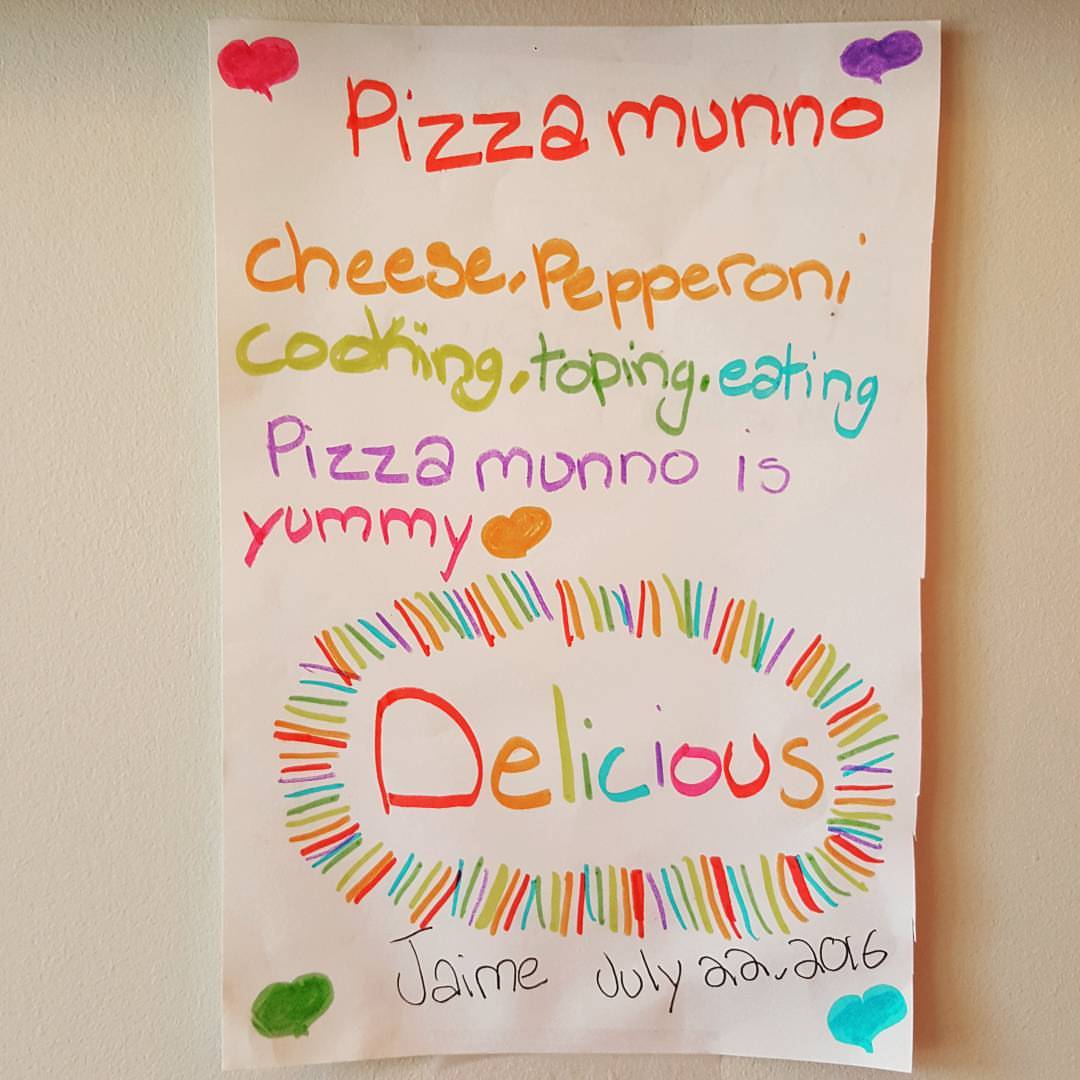 Pizza munno
cheese, Pepperoni
cooking, toping, eating
Pizza munno is
yummy
Delicious
Jaime July 22, 2016